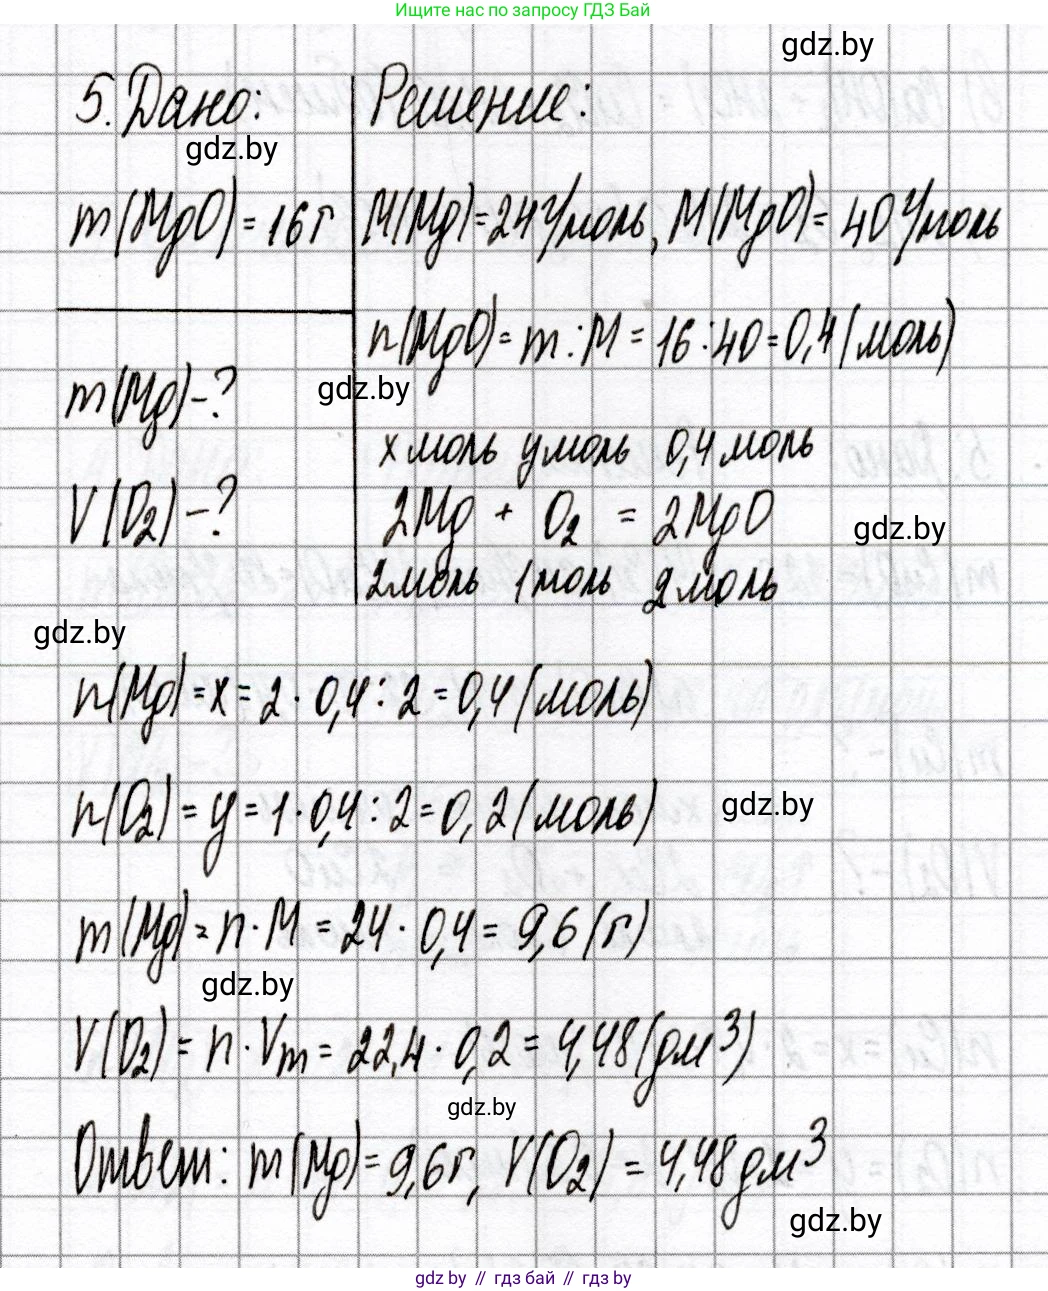 Ищите нас по запросу ГДЗ Бай
gdz.by
5. Дано:
Решение:
gdz.by
m(MgO) = 16 г
M(Mg) = 24 г/моль, M(MgO) = 40 г/моль
n(MgO) = m : M = 16 : 40 = 0,4 (моль)
m(Mg) - ?
gdz.by
x моль y моль 0,4 моль
V(O₂) - ?
2Mg + O₂ = 2MgO
gdz.by
2моль 1моль 2моль
gdz.by
n(Mg) = x = 2 · 0,4 : 2 = 0,4 (моль)
n(O₂) = y = 1 · 0,4 : 2 = 0,2 (моль)
gdz.by
m(Mg) = n · M = 24 · 0,4 = 9,6 (г)
gdz.by
V(O₂) = n · Vm = 22,4 · 0,2 = 4,48 (дм³)
gdz.by
Ответ: m(Mg) = 9,6 г, V(O₂) = 4,48 дм³
gdz.by
gdz by // гдз бай // гдз by